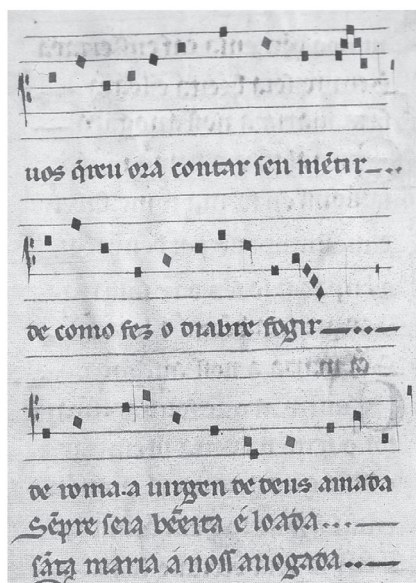 uos q̃reu ora contar sen mẽtir
de como fez o diabre fogir
de roma · a uirgen de deus amada
Sẽpre seia bẽeita e loada...
sãta maria a noss auogada..